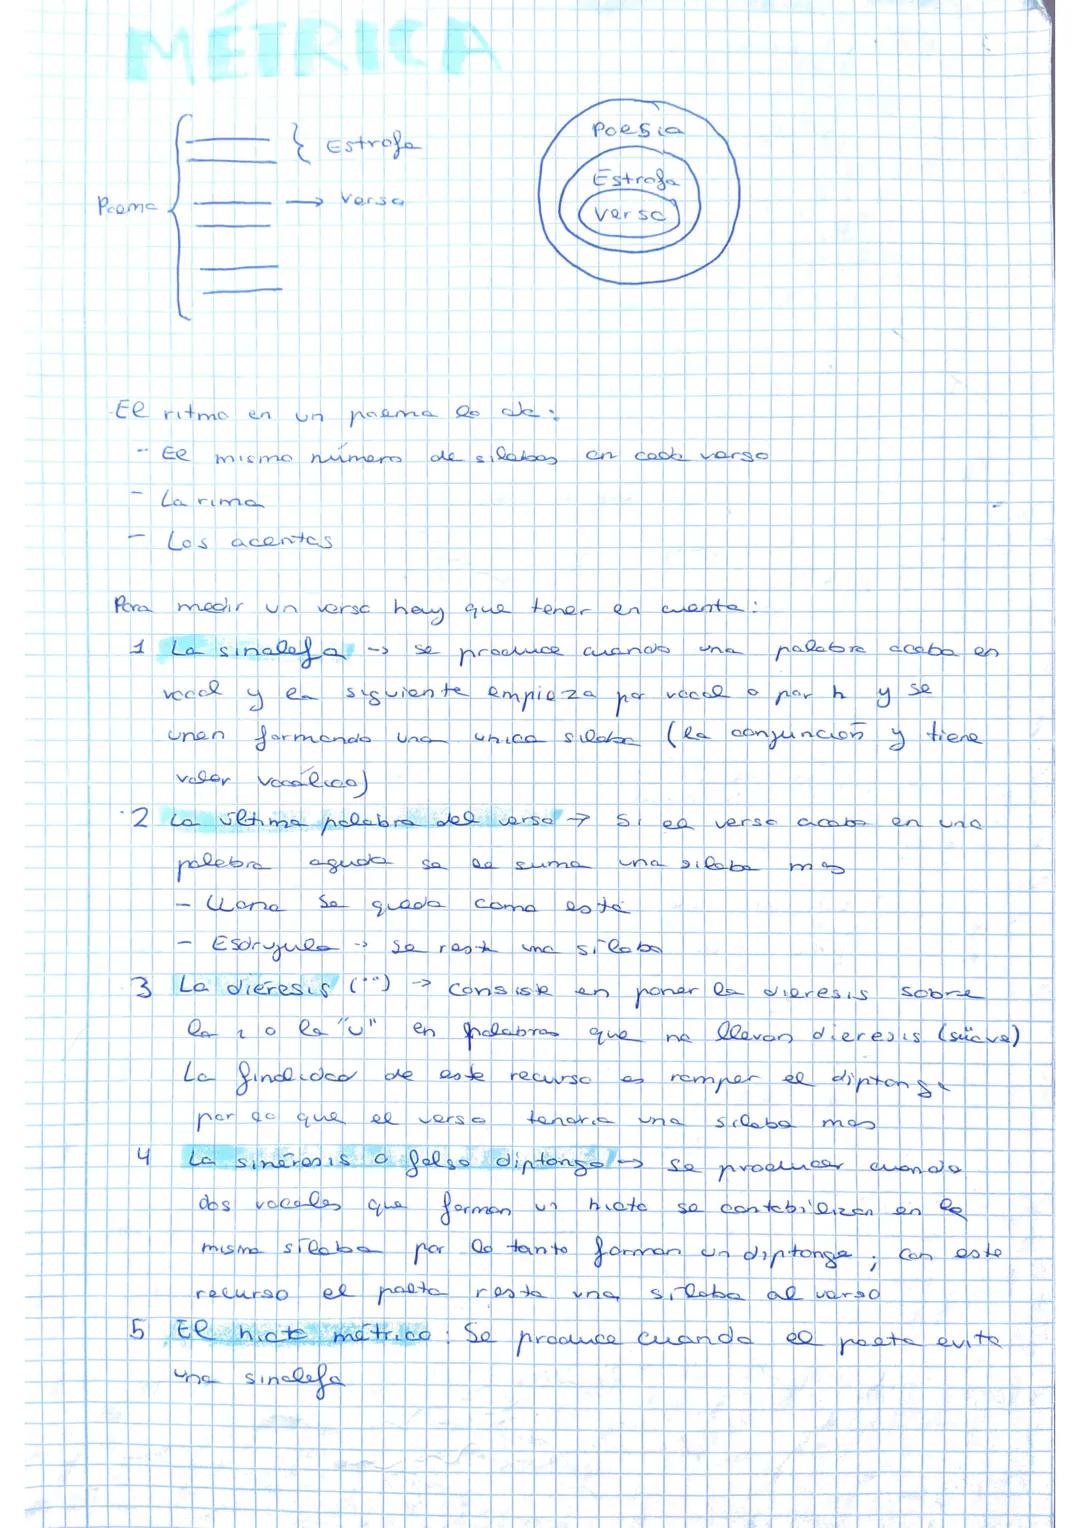 MÉTRICA
Poema
Estrofa
→ Verso
Poesía
Estrofa
Verso
El ritmo en un poema lo da:
- El mismo número de sílabas en cada verso
- La rima
- Los acentos
Para medir un verso hay que tener en cuenta:
1 La sinalefa → se produce cuando una palabra acaba en
vocal y la siguiente empieza por vocal o por h y se
unen formando una única sílaba (la conjunción y tiene
valor vocálico)
2 La última palabra del verso → Si el verso acaba en una
palabra aguda se le suma una sílaba mas
- Llana se queda como está
- Esdrújula → se resta una sílaba
3 La diéresis (¨) → consiste en poner la dieresis sobre
la i o la "u" en palabras que no llevan dieresis (süave)
La finalidad de este recurso es romper el diptongo
por lo que el verso tendría una sílaba mas
4 La sinéresis o falso diptongo → se producer cuando
dos vocales que forman un hiato se contabilizan en la
misma sílaba por lo tanto forman un diptongo; con este
recurso el poeta resta una sílaba al verso
5 El hiato métrico: Se produce cuando el poeta evita
una sinalefa